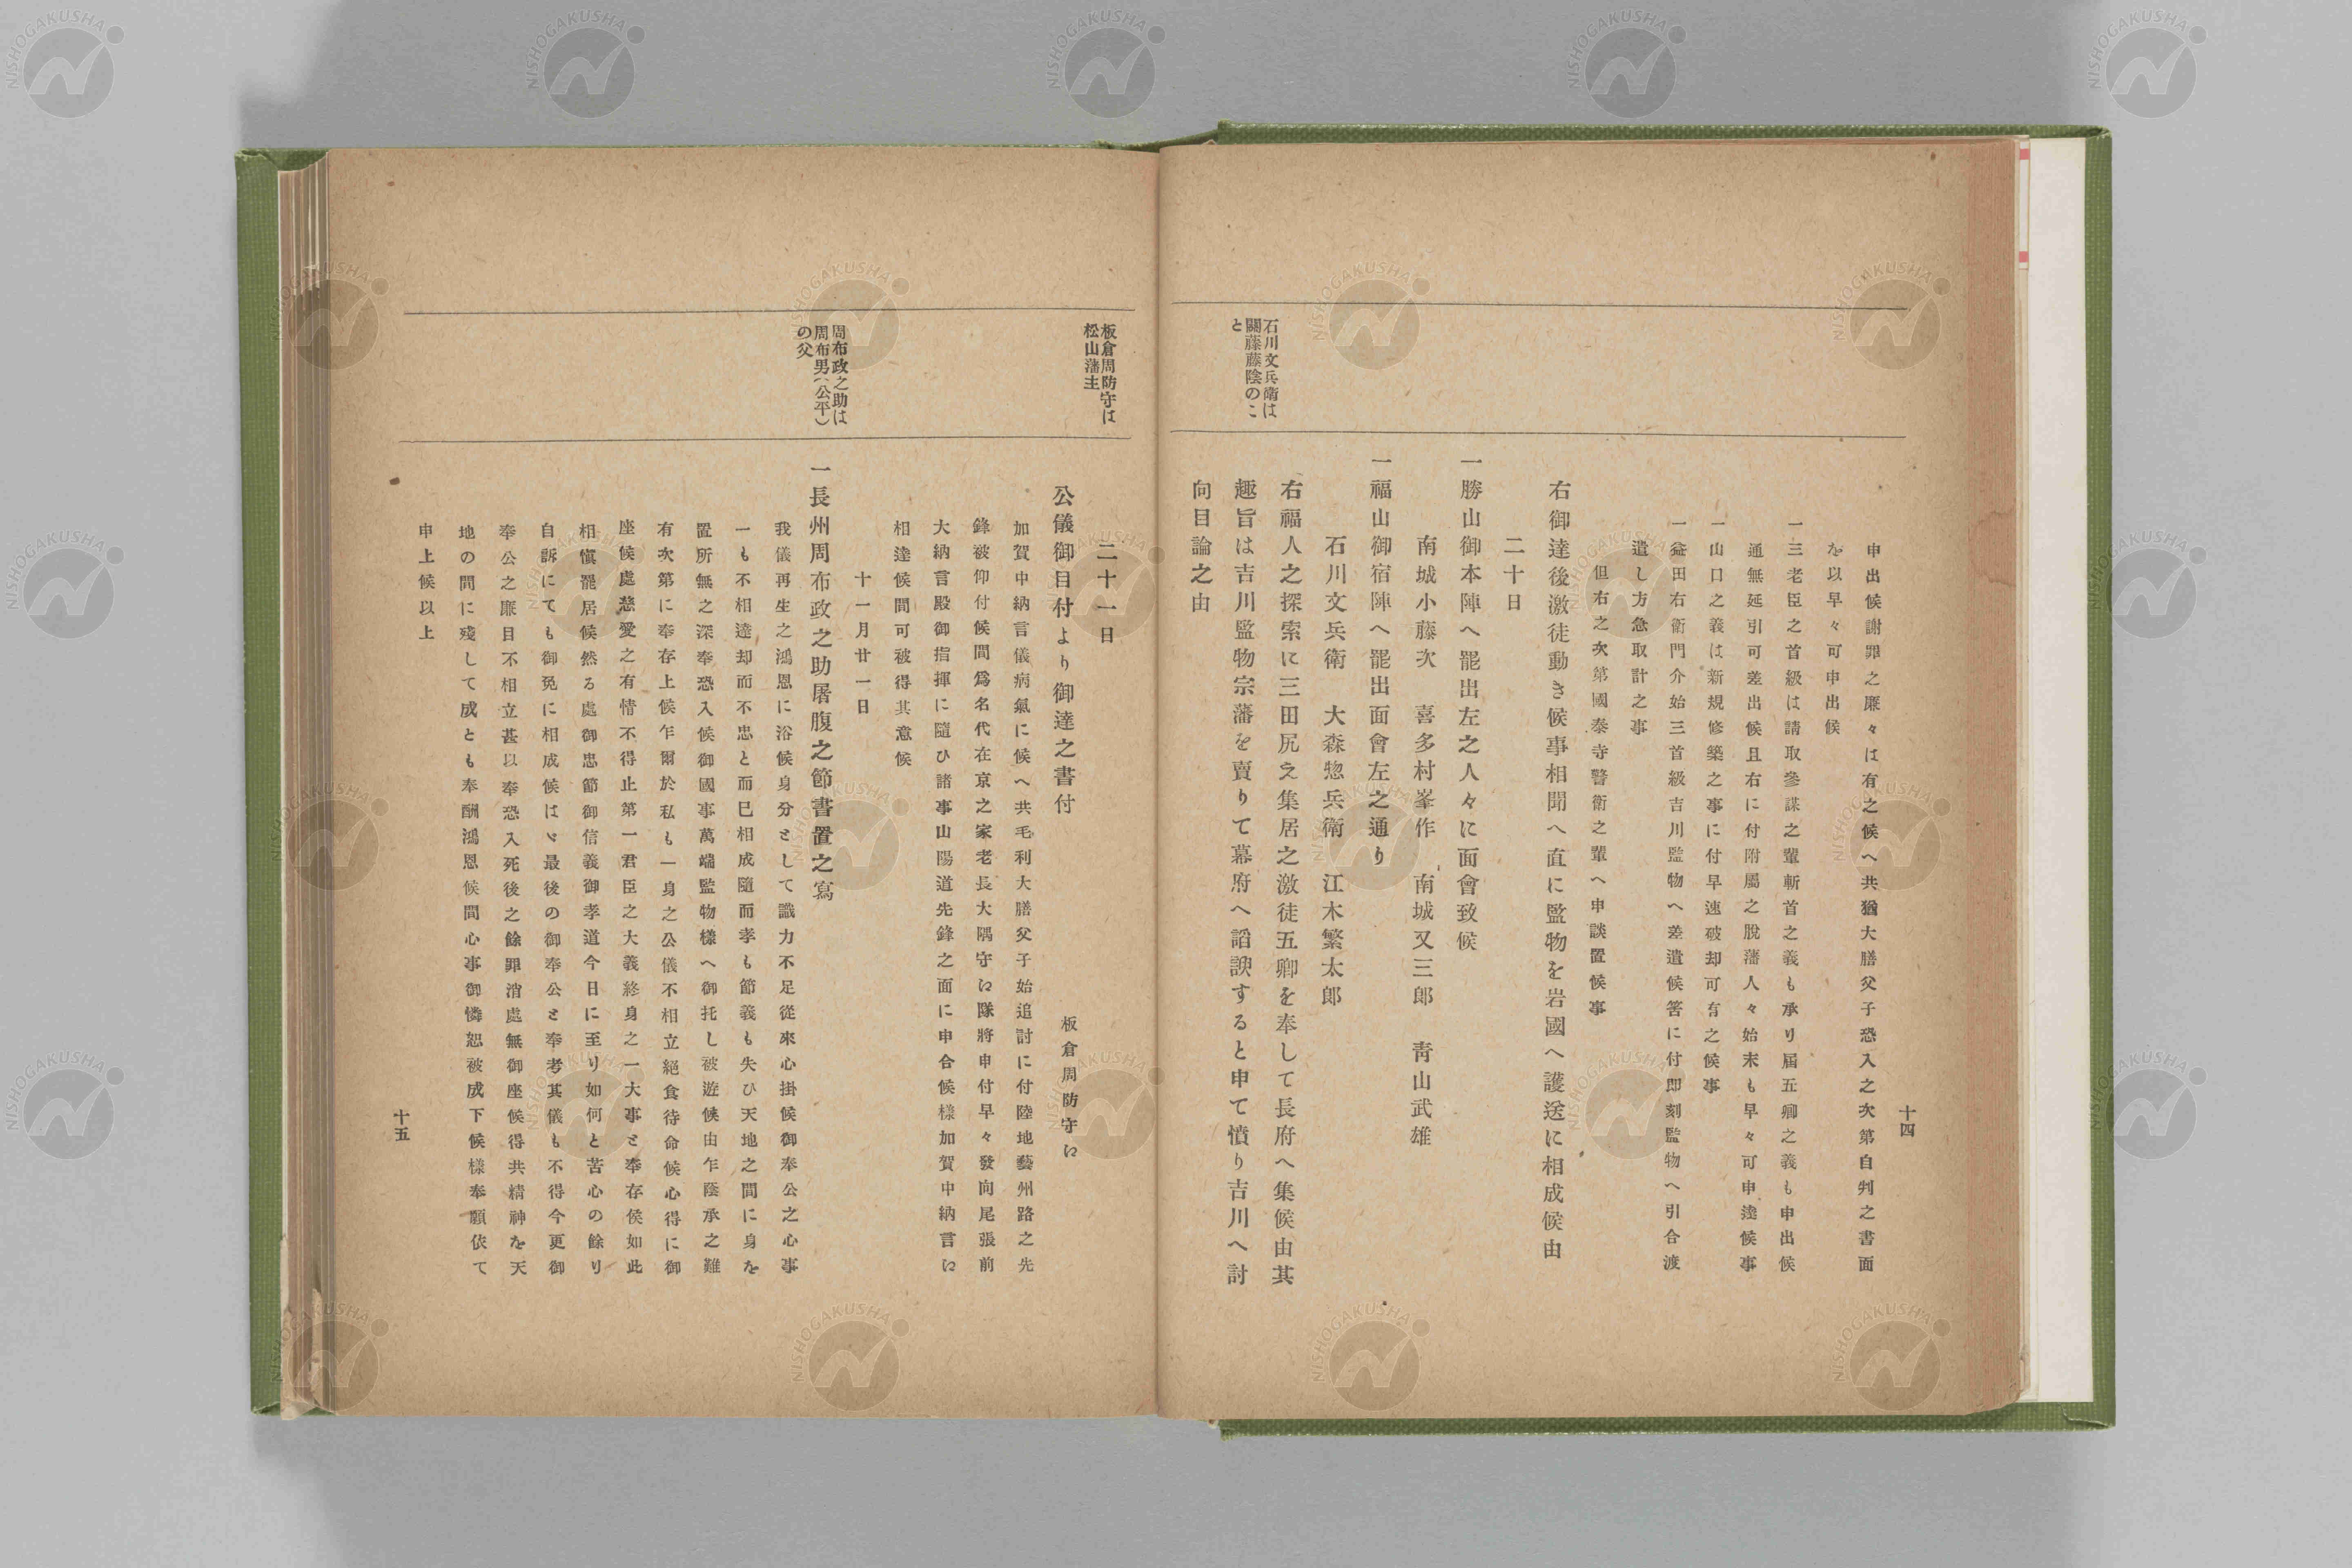 申出候謝罪之廉々は有之候へ共猶大膳父子恐入之次第自判之書面
を以早々可申出候
一三老臣之首級は請取參謀之輩斬首之義も承り屆五卿之義も申出候
通無延引可差出候且右に付附屬之脫藩人々始末も早々可申達候事
一山口之義は新規修築之事に付早速破却可有之候事
一益田右衛門介始三首級吉川監物へ差遣候筈に付卽刻監物へ引合渡
遣し方急取計之事
但右之次第國泰寺警衛之輩へ申談置候事
右御達後激徒動き候事相聞へ直に監物を岩國へ護送に相成候由
二十日
一勝山御本陣へ罷出左之人々に面會致候
南城小藤次 喜多村峯作 南城又三郎 靑山武雄
一福山御宿陣へ罷出面會左之通り
石川文兵衛 大森惣兵衛 江木繁太郎
右福人之探索に三田尻え集居之激徒五卿を奉して長府へ集候由其
趣旨は吉川監物宗藩を賣りて幕府へ諂諛すると申て憤り吉川へ討
向目論之由
石川文兵衛は
關藤藤陰のこ
と
十四
二十一日
公儀御目付より御達之書付
板倉周防守ゟ
加賀中納言儀病氣に候へ共毛利大膳父子始追討に付陸地藝州路之先
鋒被仰付候間爲名代在京之家老長大隅守ゟ隊將申付早々發向尾張前
大納言殿御指揮に隨ひ諸事山陽道先鋒之面に申合候樣加賀中納言ゟ
相達候間可被得其意候
十一月廿一日
一長州周布政之助屠腹之節書置之寫
我儀再生之鴻恩に浴候身分として識力不足從來心掛候御奉公之心事
一も不相達却而不忠と而巳相成隨而孝も節義も失ひ天地之間に身を
置所無之深奉恐入候御國事萬端監物樣へ御托し被遊候由乍蔭承之難
有次第に奉存上候乍爾於私も一身之公儀不相立絕食待命候心得に御
座候處慈愛之有情不得止第一君臣之大義終身之一大事と奉存候如此
相愼罷居候然る處御忠節御信義御孝道今日に至り如何と苦心の餘り
自訴にても御免に相成候はゞ最後の御奉公と奉考其儀も不得今更御
奉公之廉目不相立甚以奉恐入死後之餘罪消處無御座候得共精神を天
地の間に殘して成とも奉酬鴻恩候間心事御憐恕被成下候樣奉願依て
申上候以上
板倉周防守は
松山藩主
周布政之助は
周布男(公平)
の父
十五
NISHOGAKUSHA